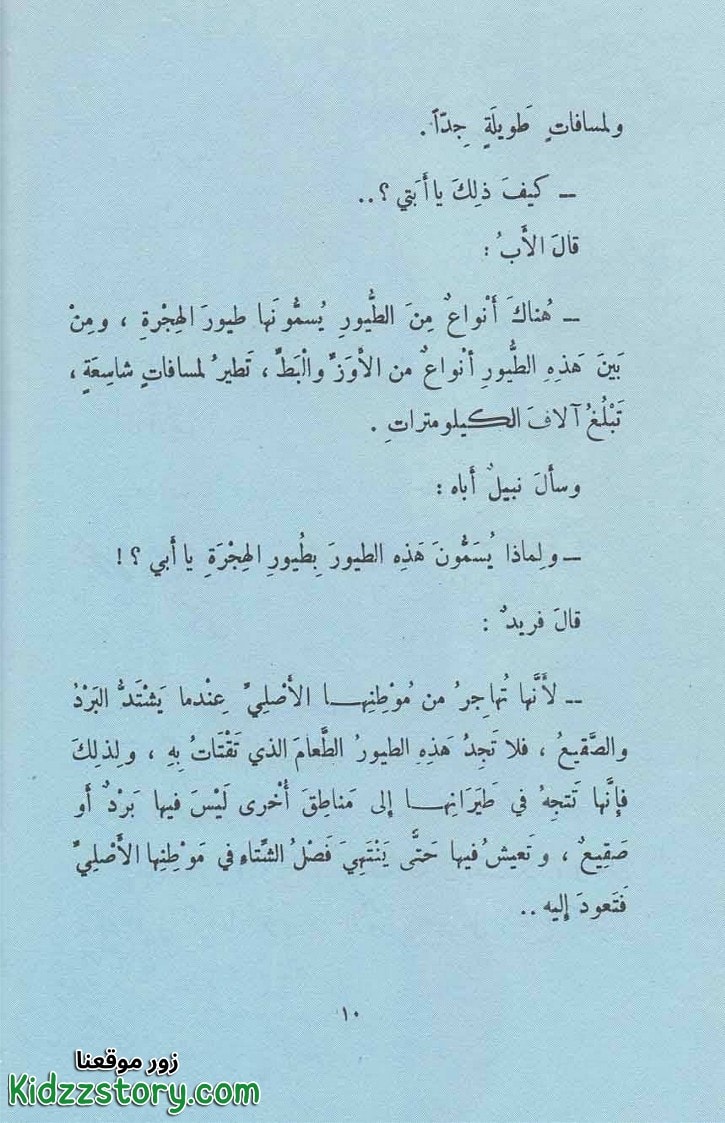 ولمسافاتٍ طَويلَةٍ جِدّاً .
ــ كيفَ ذلِكَ يا أَبَتي ؟ ..
قالَ الأَبُ :
ــ هُناكَ أَنْواعٌ مِنَ الطُّيورِ يُسمُّونَها طيورَ الهِجْرةِ ، ومِنْ
بَينَ هَذِهِ الطُّيورِ أنْواعٌ من الأَوَزِّ والْبَطِّ ، تَطيرُ لمسافاتٍ شاسِعَةٍ ،
تَبْلُغُ آلافَ الكيلومتراتِ .
وسألَ نبيلٌ أَباه :
ــ ولِماذا يُسَمُّونَ هَذِه الطيورَ بِطُيورِ الهِجْرَةِ يا أَبي ؟ !
قالَ فريدٌ :
ــ لأَنَّها تُهاجِرُ من مُوْطِنِهـــا الأَصْلِيِّ عِنْدما يَشْتَدُّ البَرْدُ
والصَّقيعُ ، فلا تَجِدُ هَذِهِ الطيورُ الطَّعامَ الذي تَقْتَاتُ بِهِ ، ولِذلكَ
فإِنَّها تَتجِهُ في طَيَرَانِهـــا إلى مَناطِقَ أُخْرى لَيْسَ فيها بَرْدٌ أَو
صَقِيعٌ ، وتَعيشُ فيها حَتَّى يَنْتَهِيَ فَصْلُ الشِّتاءِ في مَوْطِنِها الأَصْلِيِّ
فَتَعودَ إِليه ..
١٠
زور موقعنا
Kidzzstory.com